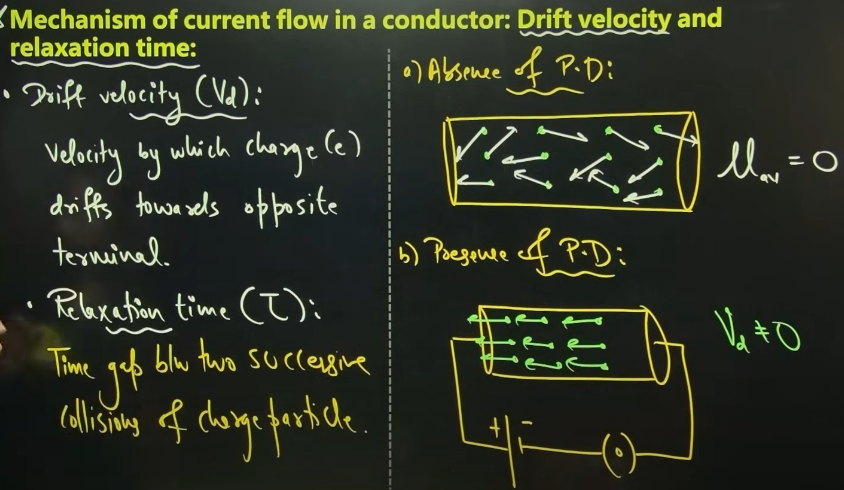 Mechanism of current flow in a conductor: Drift velocity and
relaxation time:
• Drift velocity (Vd):
Velocity by which charge (e)
drifts towards opposite
terminal.
• Relaxation time (τ):
Time gap b/w two successive
collisions of charge particle.
a) Absence of P.D:
μav = 0
b) Presence of P.D:
Vd ≠ 0
+ -